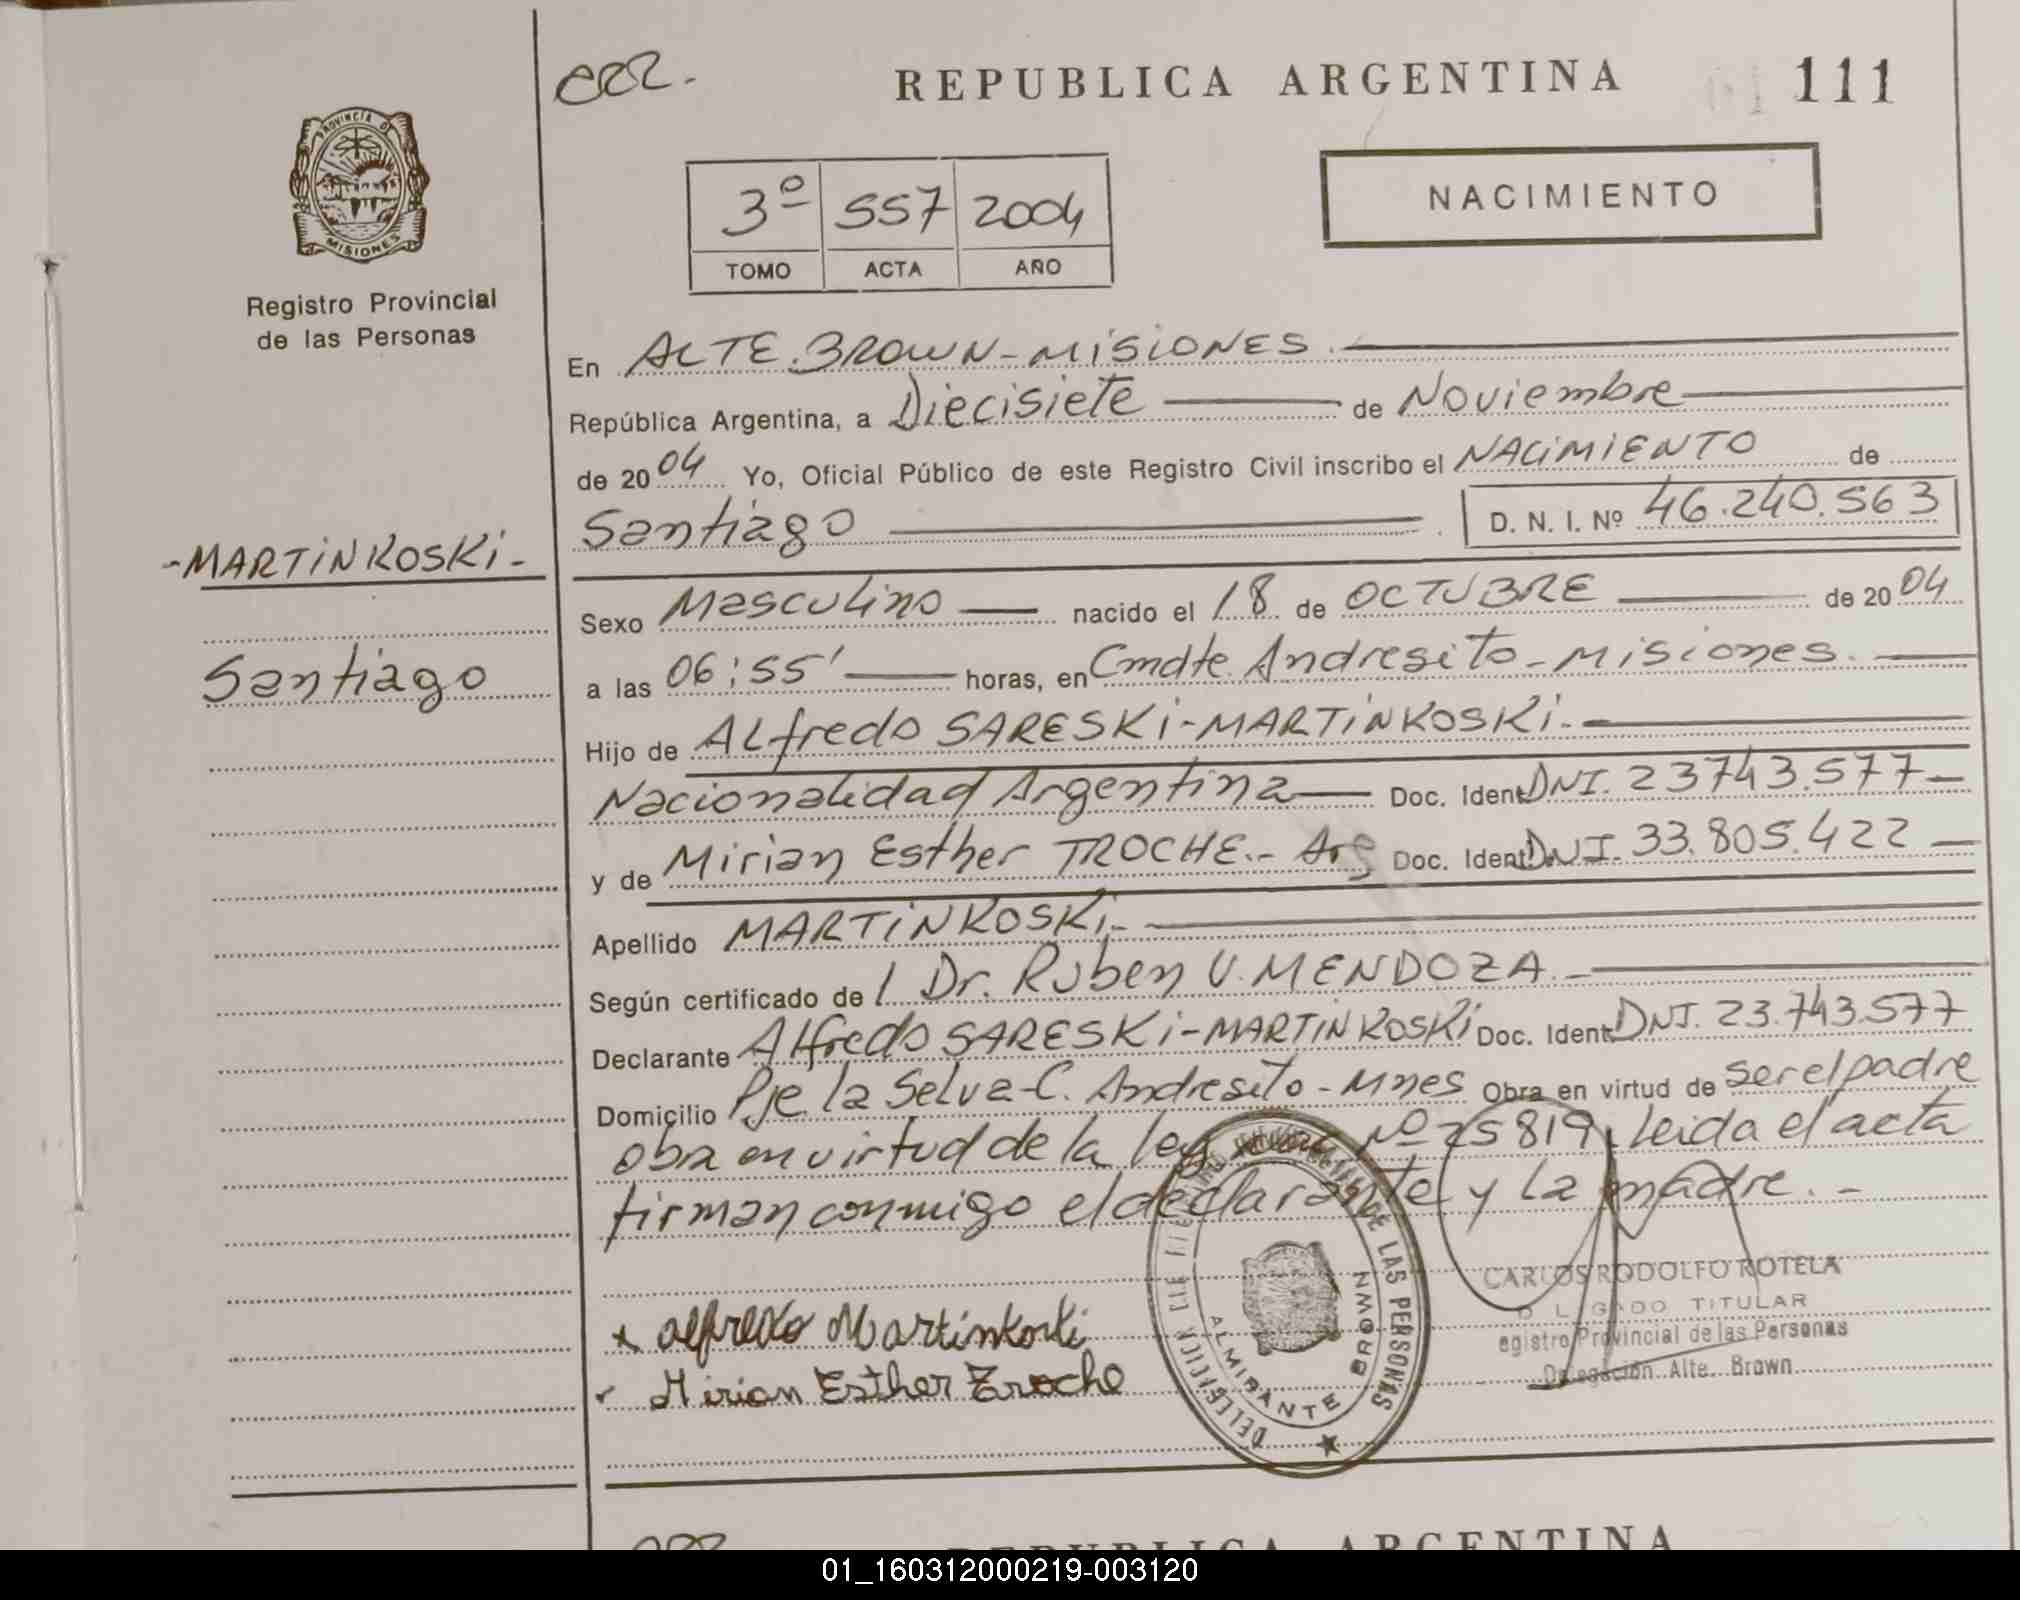 ccr.
REPUBLICA ARGENTINA
111
PROVINCIA DE
MISIONES
Registro Provincial
de las Personas
3º 557 2004
TOMO ACTA AÑO
NACIMIENTO
En ALTE. BROWN - MISIONES.
República Argentina, a Diecisiete de Noviembre
de 2004 Yo, Oficial Público de este Registro Civil inscribo el NACIMIENTO de
Santiago D. N. I. Nº 46.240.563
-MARTINKOSKI-
Santiago
Sexo Masculino nacido el 18 de OCTUBRE de 2004
a las 06:55' horas, en Cmdte. Andresito - Misiones.
Hijo de ALfredo SARESKI-MARTINKOSKI.-
Nacionalidad Argentina Doc. Ident. DNI. 23743.577-
y de Mirian Esther TROCHE.- Arg Doc. Ident. DNI. 33.805.422-
Apellido MARTINKOSKI.-
Según certificado de l Dr. Ruben U. MENDOZA.-
Declarante Alfredo SARESKI-MARTINKOSKI Doc. Ident. DNI. 23.743.577
Domicilio Pje. la Selva-C. Andresito - Mnes Obra en virtud de ser el padre
obra en virtud de la ley Nº 25819. Leida el acta
firman conmigo el declarante y La madre.-
x alfredo Martinkoski
Mirian Esther Troche
DE LAS PERSONAS
ALMIRANTE BROWN
CARLOS RODOLFO ROTELA
D L GADO TITULAR
egistro Provincial de las Personas
Delegación Alte. Brown
REPUBLICA ARGENTINA
01_160312000219-003120